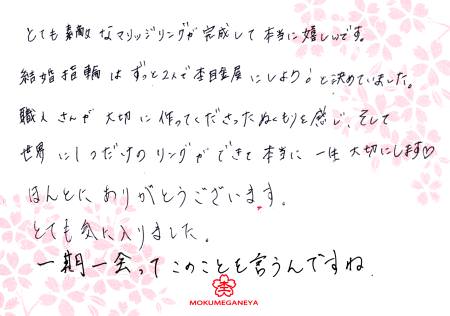 とても素敵なマリッジリングが完成して本当に嬉しいです。
結婚指輪はずっと2人で杢目金屋にしよう!と決めていました。
職人さんが大切に作ってくださったぬくもりを感じ、そして
世界に1つだけのリングができて本当に一生大切にします♡
ほんとにありがとうございます。
とても気に入りました。
一期一会ってこのことを言うんですね。
杢
MOKUMEGANEYA